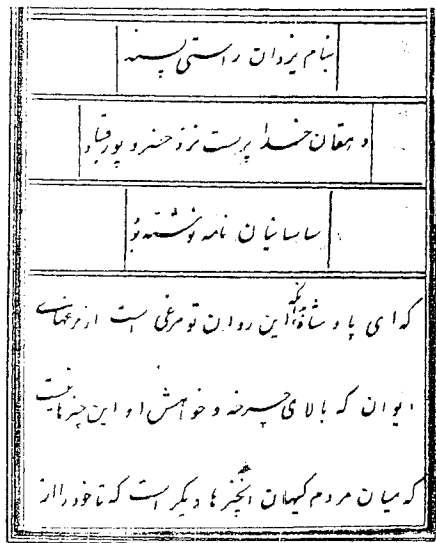 بنام یزدان راستی پسند
دهقان خدا پرست نزد خسرو پور قباد
ساسانیان نامه نوشته بود
که ای پادشاه این روان تو مرغی است از مرغهای
ایوان که بالای چرخه و خواهش او این چیزها نیست
که میان مردم کیهان چیزها دیگر است که تا خود را از